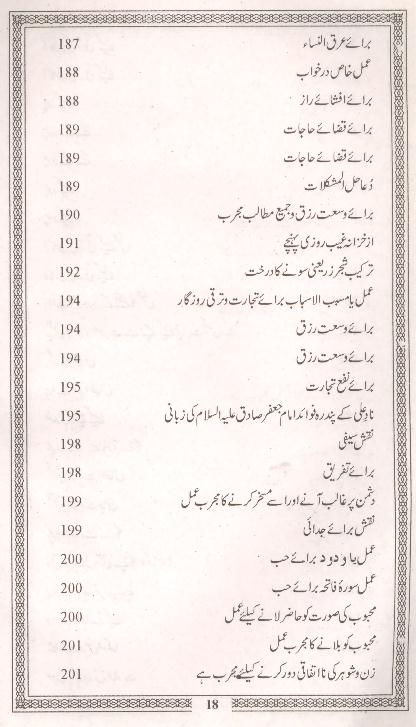 برائے عرق النساء 187
عمل خاص در خواب 188
برائے افشائے راز 188
برائے قضائے حاجات 189
برائے قضائے حاجات 189
دُعا حل المشکلات 189
برائے وسعت رزق و جمیع مطالب مجرب 190
از خزانہ غیب روزی پہنچے 191
ترکیب شجر زر یعنی سونے کا درخت 192
عمل یا مسبب الاسباب برائے تجارت و ترقی روزگار 194
برائے وسعت رزق 194
برائے وسعت رزق 194
برائے نفع تجارت 195
نادِ علی کے پندرہ فوائد امام جعفر صادق علیہ السلام کی زبانی 195
نقش سیفی 198
برائے تفریق 198
دشمن پر غالب آنے اور اسے مسخر کرنے کا مجرب عمل 199
نقش برائے جدائی 199
عمل یا ودود برائے حب 200
عمل سورۂ فاتحہ برائے حب 200
محبوب کی صورت کو حاضر لانے کیلئے عمل 200
محبوب کو بلانے کا مجرب عمل 201
زن و شوہر کی نااتفاقی دور کرنے کیلئے مجرب ہے 201
18